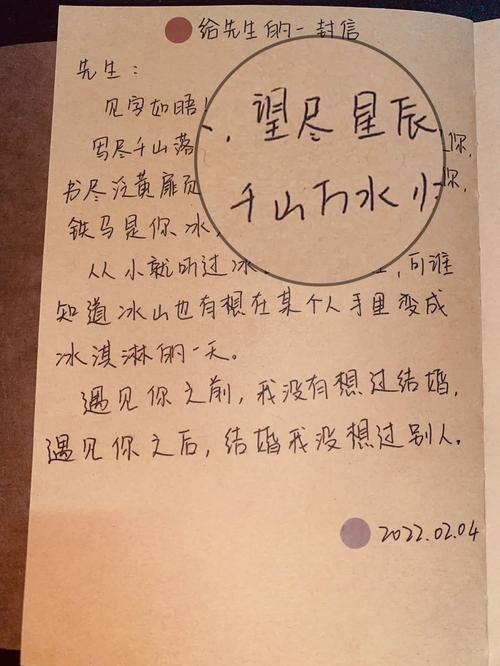 给先生的一封信
先生：
见字如晤！
写尽千山落
你，
望尽星辰
书尽泛黄扉页
你，
千山万水归
铁马是你冰，
从小就听过冰
，可谁
知道冰山也有想在某个人手里变成
冰淇淋的一天。
遇见你之前，我没有想过结婚，
遇见你之后，结婚我没想过别人。
2022.02.04